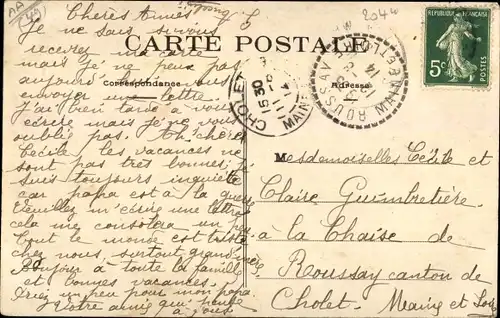 Chères Amies
Je ne sais si vous
recevrez ma carte
mais je ne peux pas
aujourd'hui vous
envoyer une lettre
J'ai bien tardé à vous
écrire mais je ne vous
oublie pas. Th chère
Cécile les vacances ne
sont pas très bonnes, je
suis toujours inquiète
car papa est à la guerre
veuillez m'écrire une lettre
cela me consolera un peu
tout le monde est triste
chez nous, surtout grand'mère
Bonjour à toute la famille
et bonnes vacances.
Priez un peu pour mon papa
Votre amie qui pense
à vous
2044
CARTE POSTALE
Correspondance
Adresse
CHOLET
15 30
MAINE
ROUSSAY
14
REPUBLIQUE FRANÇAISE
5c
POSTES
Mesdemoiselles Cécile et
Claire Guimbretière
à la Chaise de
Roussay canton de
Cholet. Maine et Loire